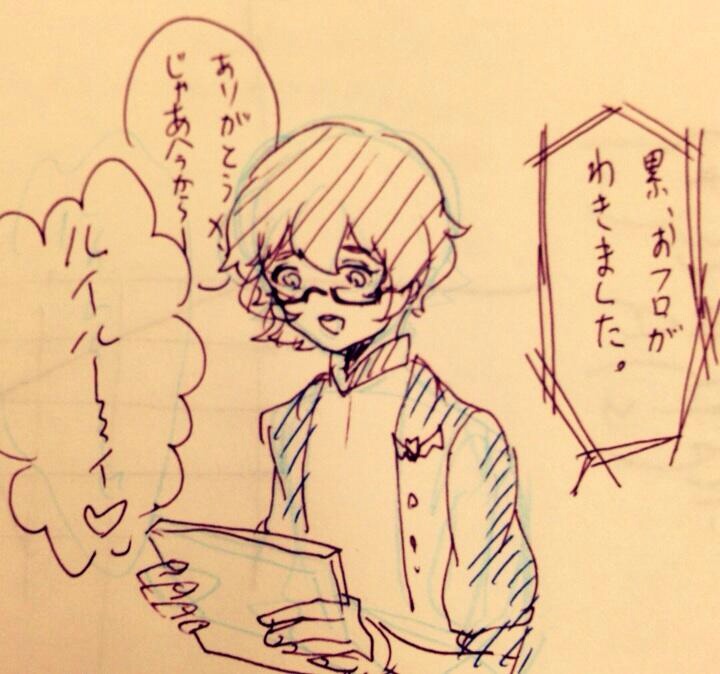 累、おフロが
わきました。
ありがとう
じゃあ今から〜
ルイルーイ♡